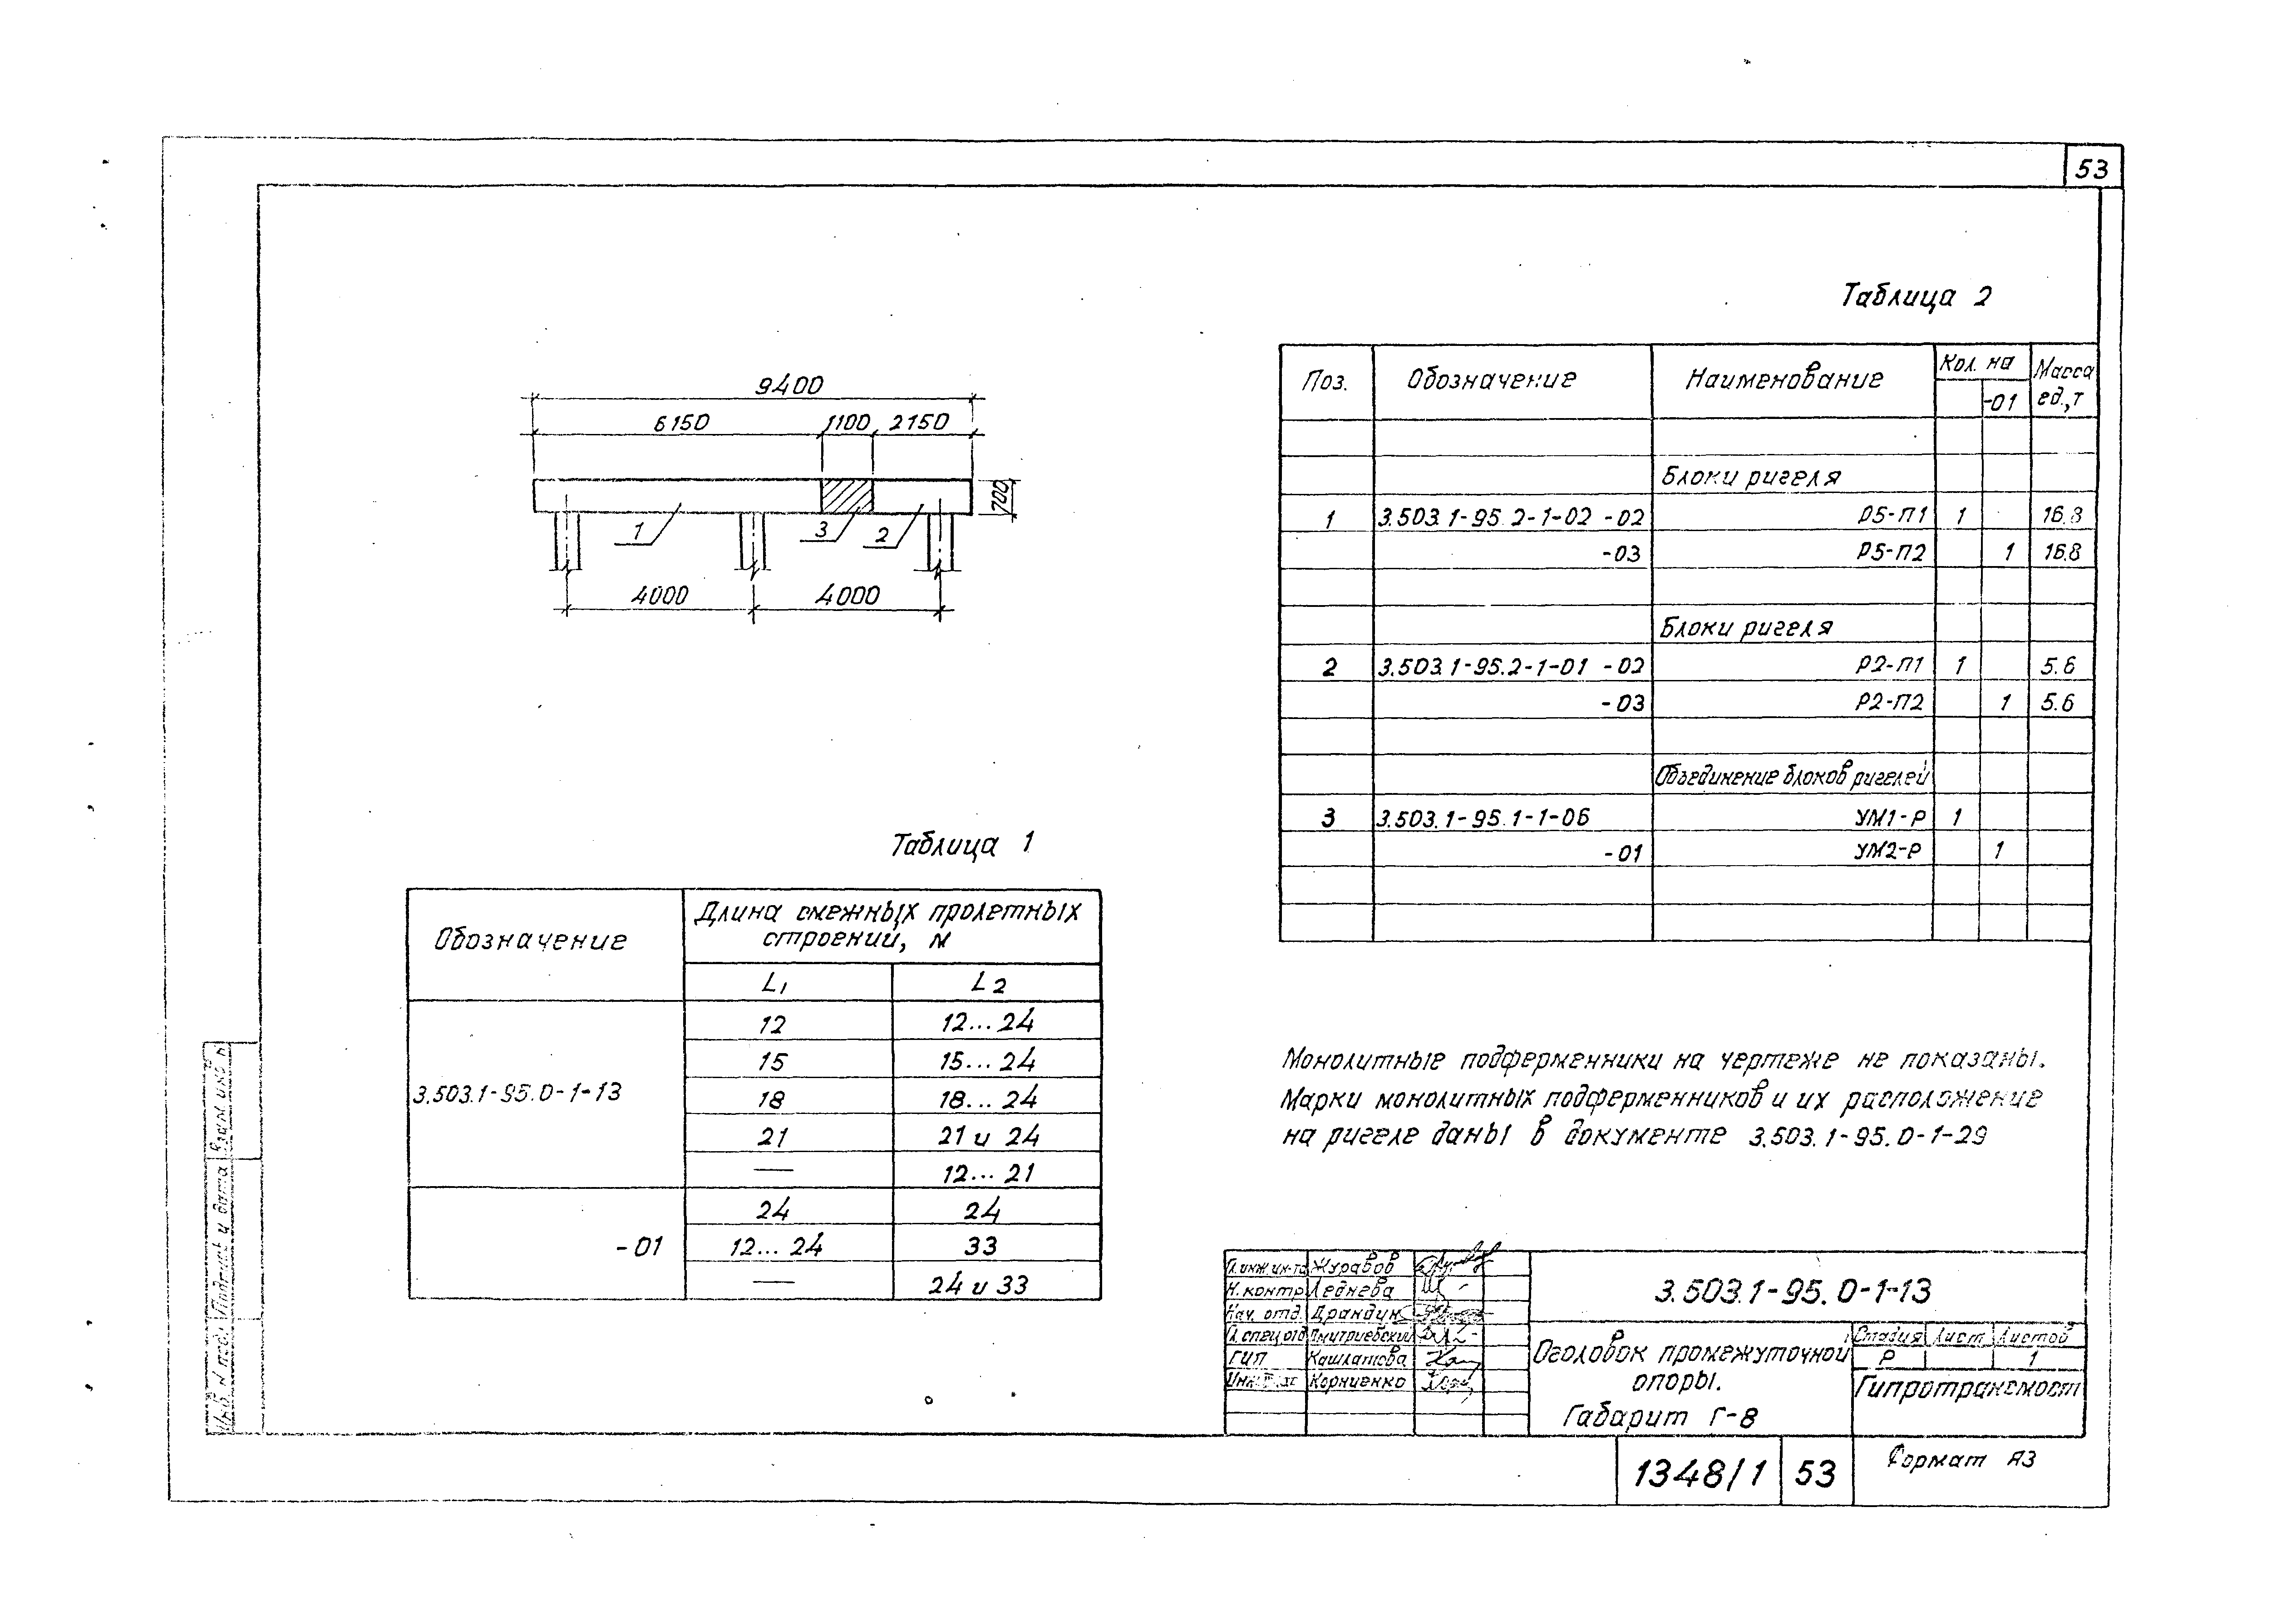 53
9400
6150 1100 2150
700
1 3 2
4000 4000
Таблица 2
Поз. Обозначение Наименование Кол. на Масса ед.,т
-01
Блоки ригеля
1 3.503.1-95.2-1-02 -02 Р5-П1 1 16.8
-03 Р5-П2 1 16.8
Блоки ригеля
2 3.503.1-95.2-1-01 -02 Р2-П1 1 5.6
-03 Р2-П2 1 5.6
Объединение блоков ригелей
3 3.503.1-95.1-1-06 УМ1-Р 1
-01 УМ2-Р 1
Таблица 1
Обозначение Длина смежных пролетных
строений, м
L1 L2
12 12...24
15 15...24
3.503.1-95.0-1-13
18 18...24
21 21 и 24
— 12...21
24 24
-01 12...24 33
— 24 и 33
Монолитные подферменники на чертеже не показаны.
Марки монолитных подферменников и их расположение
на ригеле даны в документе 3.503.1-95.0-1-29
Гл.инж.ин-та Журавов
Н.контр Леднева
Нач. отд. Драндин
Гл.спец.отд Дмитриевский
ГИП Кашлатова
Корниенко
3.503.1-95.0-1-13
Оголовок промежуточной
опоры.
Габарит Г-8
Стадия Лист Листов
Р 1
Гипротрансмост
1348/1 53 Формат А3
Инв. N подл. Подпись и дата Взам инв N